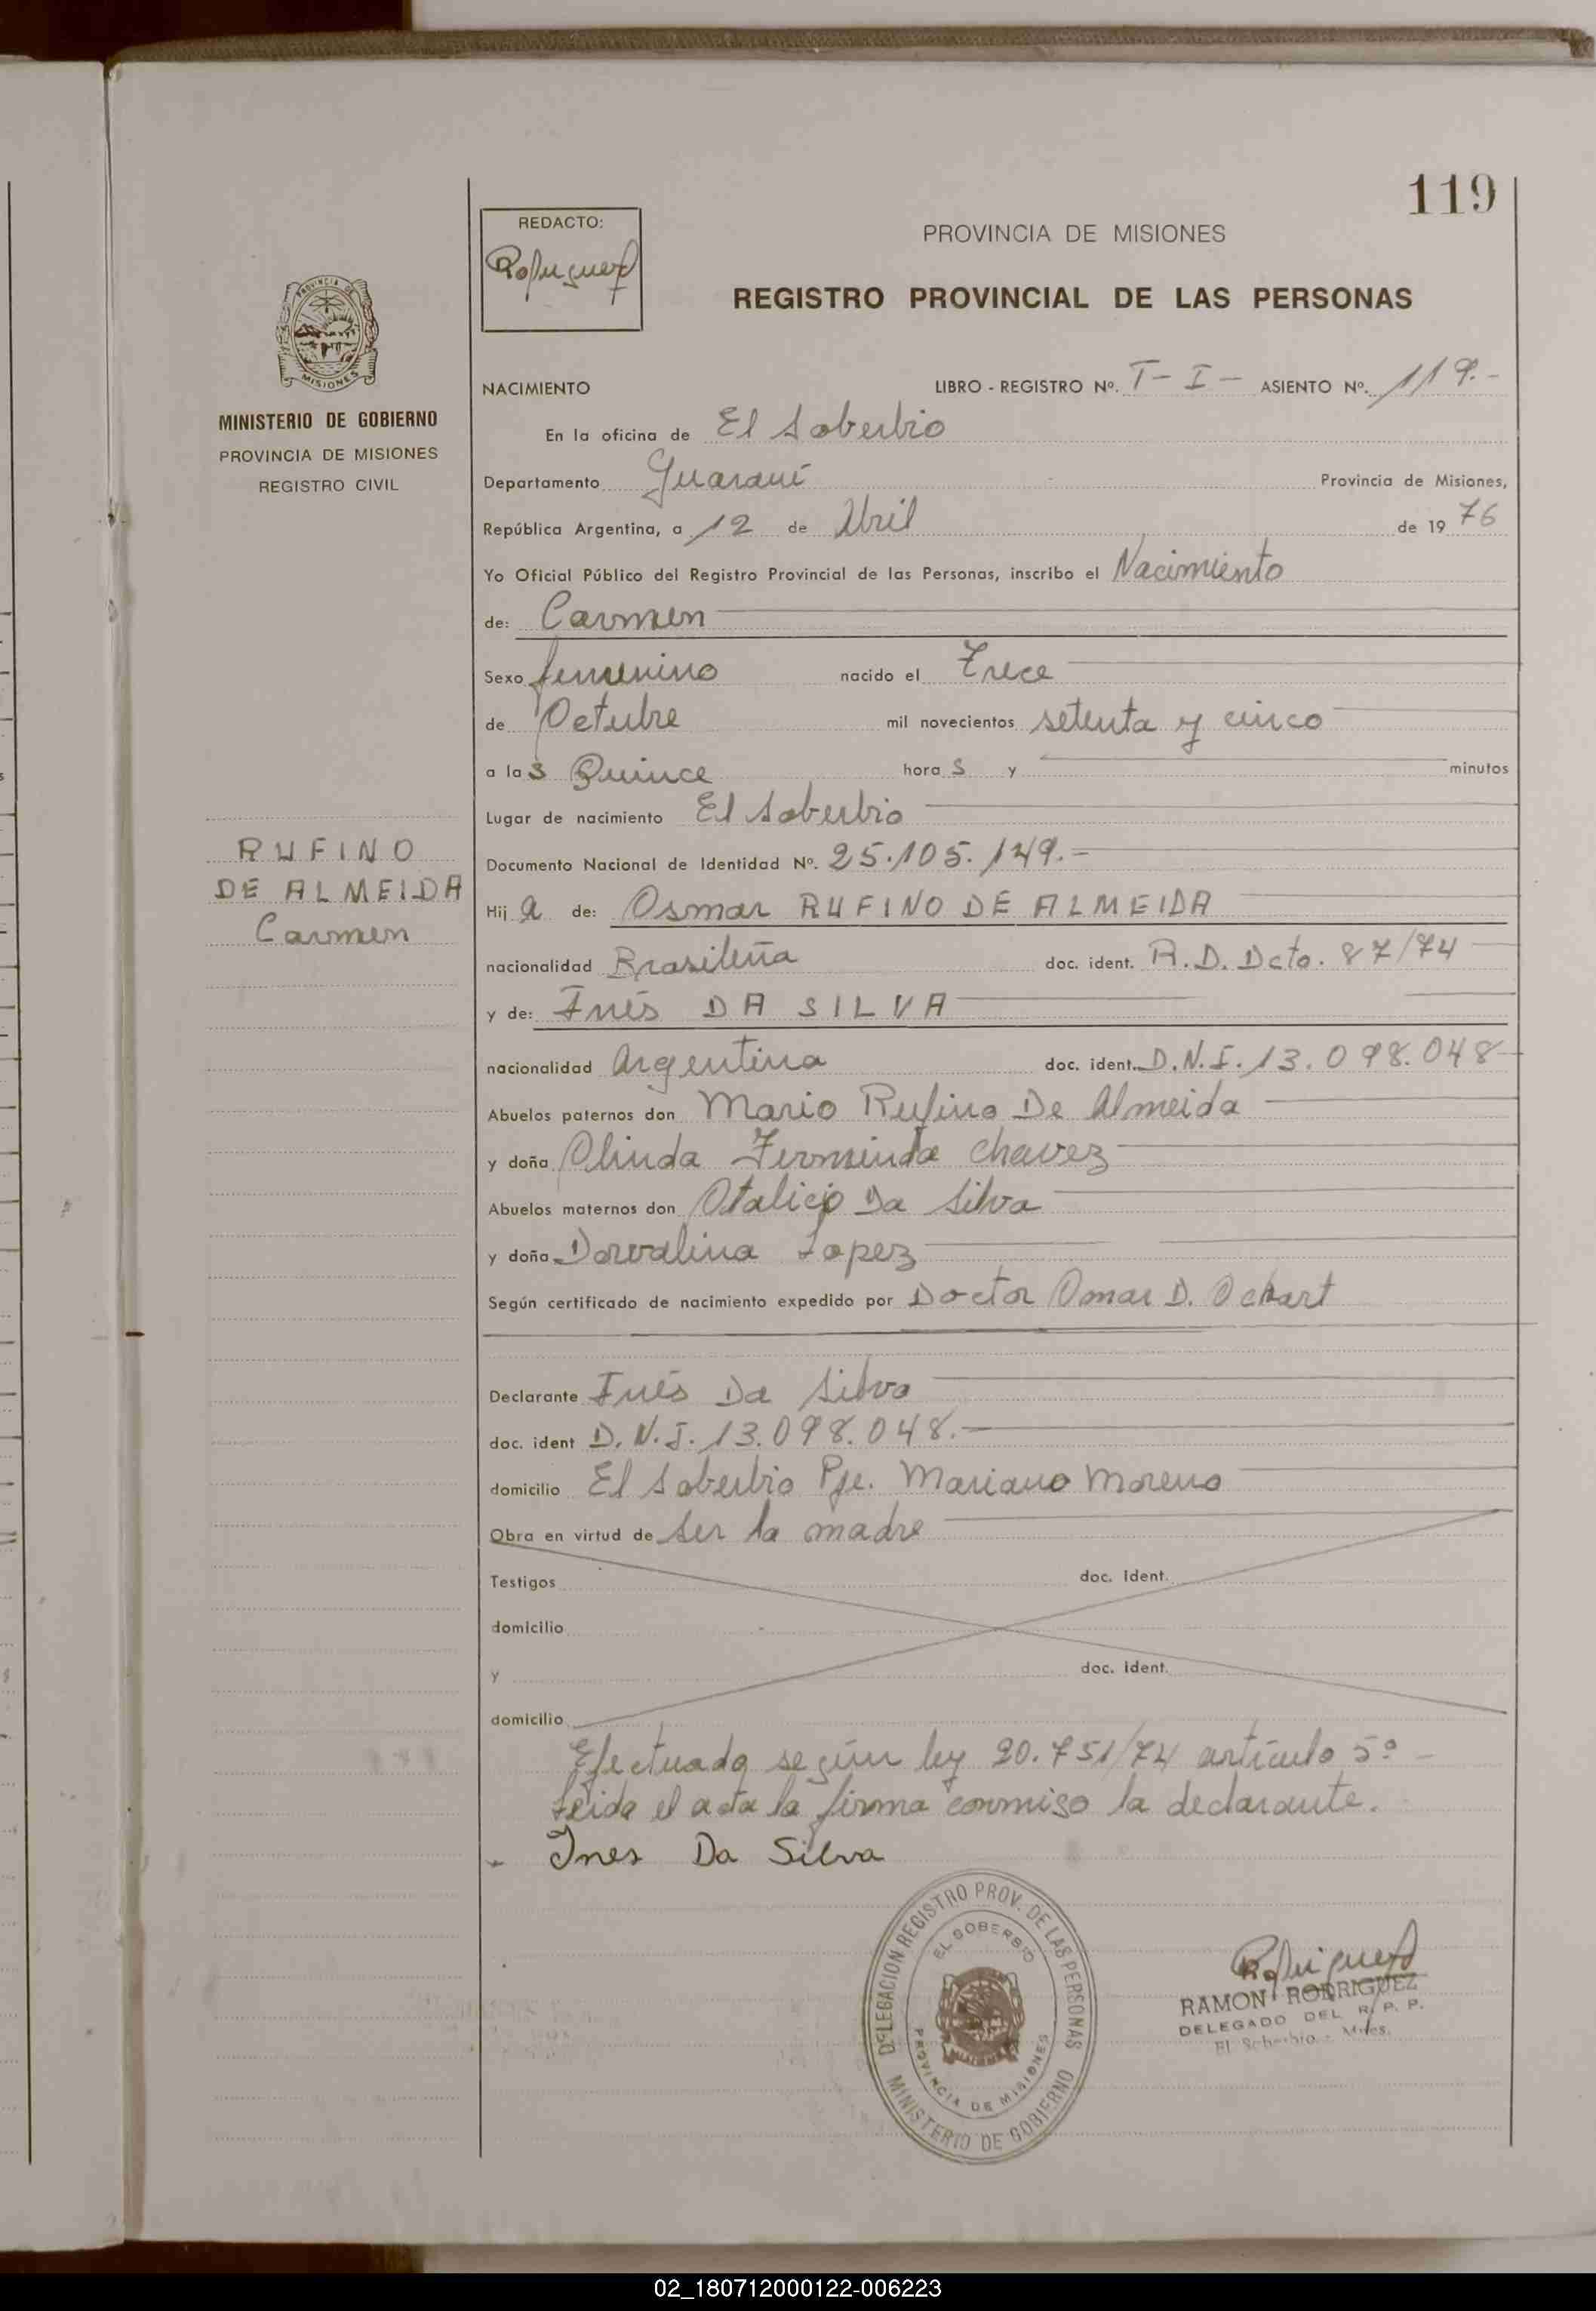 119
REDACTO:
Rodriguez
PROVINCIA DE MISIONES
REGISTRO PROVINCIAL DE LAS PERSONAS
PROVINCIA DE
MISIONES
MINISTERIO DE GOBIERNO
PROVINCIA DE MISIONES
REGISTRO CIVIL
NACIMIENTO LIBRO - REGISTRO Nº. T- I - ASIENTO Nº. 119.-
En la oficina de El Soberbio
Departamento Guaraní Provincia de Misiones,
República Argentina, a 12 de Abril de 1976
Yo Oficial Público del Registro Provincial de las Personas, inscribo el Nacimiento
de: Carmen
Sexo femenino nacido el Trece
de Octubre mil novecientos setenta y cinco
a las Quince horas y minutos
Lugar de nacimiento El Soberbio
RUFINO
DE ALMEIDA
Carmen
Documento Nacional de Identidad Nº. 25.105.149.-
Hija de: Osmar RUFINO DE ALMEIDA
nacionalidad Brasileña doc. ident. R.D. Dcto. 87/74
y de: Inés DA SILVA
nacionalidad Argentina doc. ident. D.N.I. 13.098.048
Abuelos paternos don Mario Rufino De Almeida
y doña Olinda Ferminda Chavez
Abuelos maternos don Otalicio Da Silva
y doña Dorvalina Lopez
Según certificado de nacimiento expedido por Doctor Omar D. Ochart
Declarante Inés Da Silva
doc. ident D.N.I. 13.098.048.-
domicilio El Soberbio Pje. Mariano Moreno
Obra en virtud de Ser la madre
Testigos doc. ident.
domicilio
y doc. ident.
domicilio
Efectuada según ley 20.751/74 artículo 5º -
Leida el acta la firma conmigo la declarante.
Ines Da Silva
DELEGACION REGISTRO PROV. DE LAS PERSONAS
EL SOBERBIO
PROVINCIA DE MISIONES
MINISTERIO DE GOBIERNO
Rodriguez
RAMON RODRIGUEZ
DELEGADO DEL R. P. P.
El Soberbio - Mnes.
02_180712000122-006223